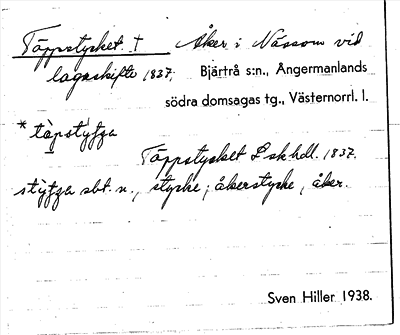 Täppstycket † Åker i Nässom vid
lagaskifte 1837. Bjärtrå s:n., Ångermanlands
södra domsagas tg., Västernorrl. l.
* täpstyʃʒa
Täppstycket L skhdl. 1837.
styʃʒa sbt. n., stycke; åkerstycke, åker.
Sven Hiller 1938.